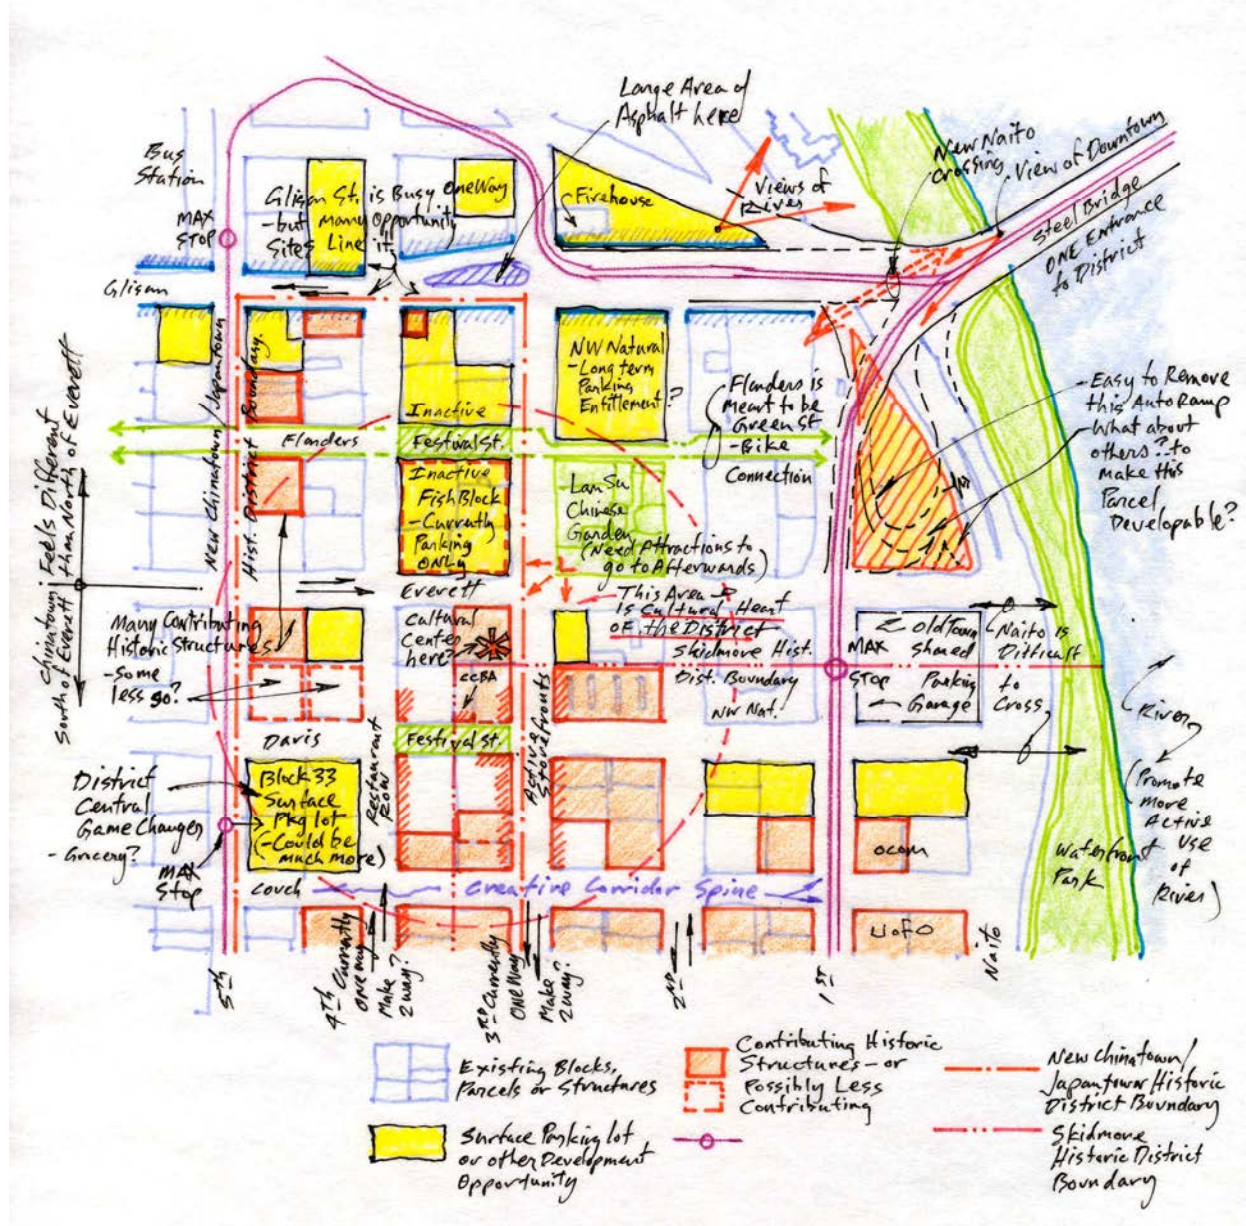 Large Area of
Asphalt here
Bus
Station
MAX
STOP
Glisan St. is Busy. One Way
- but many opportunity
Sites Line it
Firehouse
Views of
River
New Naito
Crossing
View of Downtown
Steel Bridge
ONE Entrance
to District
Glisan
New Chinatown / Japantown
Hist. District Boundary.
NW Natural
- Long term
Parking
Entitlement?
Inactive
Flanders is
meant to be
Green St
- Bike
Connection
Flanders
Festival St.
- Easy to Remove
this Auto Ramp
- What about
others? to
make this
Parcel
Developable?
Chinatown: Feels Different
South of Everett than North of Everett
Inactive
Fish Block
- Currently
Parking
ONLY
Lan Su
Chinese
Garden
(Need Attractions to
go to Afterwards)
Everett
This Area
Is Cultural Heart
OF the District
Many Contributing
Historic Structures
- Some
less so?
Cultural
Center
here?
CCBA
Skidmore Hist.
Dist. Boundary
NW Nat.
MAX
STOP
Old Town
Shared
Parking
Garage
Naito is
Difficult
to
Cross
River
(Promote
more
Active
Use
of
River)
Davis
Festival St.
Restaurant
Row
Active
Storefronts
District
Central
Game Changer
- Grocery?
MAX
Stop
Block 33
Surface
Pkg lot
(- Could be
much more)
OCOM
Waterfront
Park
Couch
Creative Corridor Spine
UofO
5th
4th Currently
one way
Make
2 way?
3RD Currently
ONE Way
Make
2 way?
2ND
1ST
Naito
Existing Blocks,
Parcels or Structures
Surface Parking lot
or other Development
Opportunity
Contributing Historic
Structures - or
Possibly Less
Contributing
New Chinatown/
Japantown Historic
District Boundary
Skidmore
Historic District
Boundary